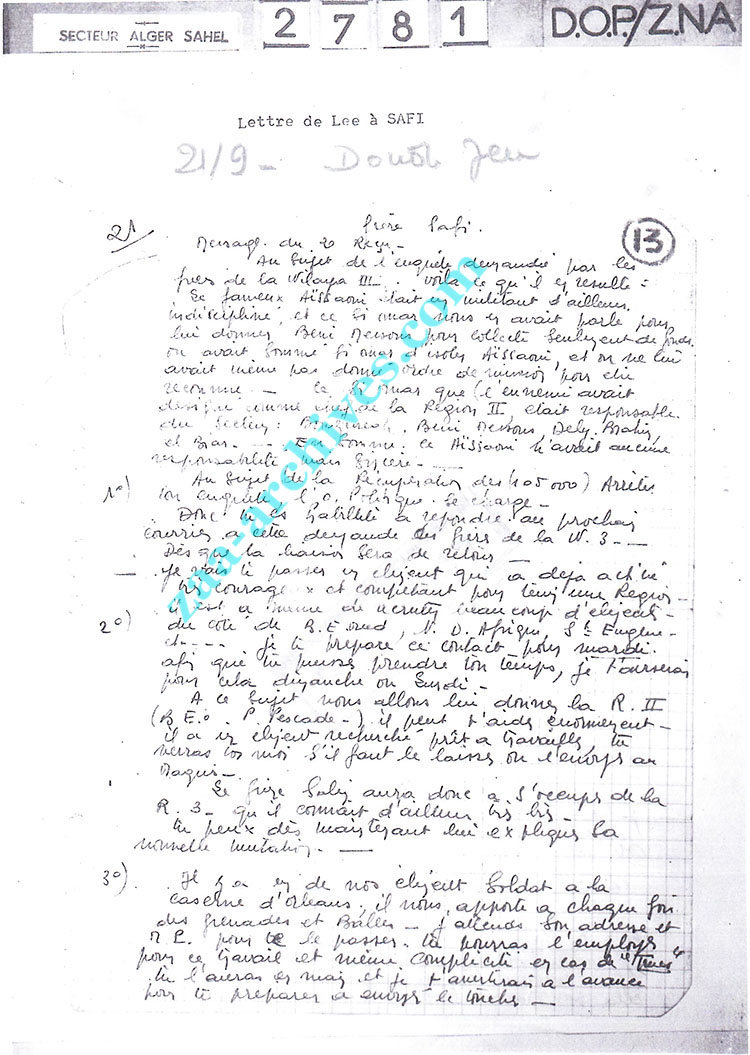 SECTEUR ALGER SAHEL
2 7 8 1
D.O.P/Z.NA
Lettre de Lee à SAFI
21/9 -
21
frère Safi.
13
Message du
Au sujet de l'enquête demandée par les
frères de la Wilaya III. Voilà ce qu'il en resulte :
Ce fameux Aïssaoui était un militant d'ailleurs
indiscipliné, et ce Si Omar nous en avait parlé pour
lui donner Beni Messous pour collecte seulement de fonds
on avait sommé Si Omar d'isoler Aïssaoui, et on ne lui
avait même pas donné ordre de mission pour être
reconnu. — Ce Si Omar que l'ennemi avait
designé comme chef de la Région II, était responsable
du secteur : Bouzareah, Beni Messous Dely Brahim
et Biar. --- En somme ce Aïssaoui n'avait aucune
responsabilité mais
1°)
Au sujet de la Récuperation des (105000) Arrête
ton enquête l'O. Politique se charge -
Donc tu es habilité a repondre au prochain
courrier a cette demande des frères de la W. 3. —
Dès que la liaison sera de retour —
— Je vais te passer un élément qui a deja activé
très courageux et compétant pour tenir une Région -
2°)
il est a même de recruter beaucoup d'éléments
du côté de B.E.oued, N. D. Afrique, St Eugène -
et ---. Je te prepare ce contact pour mardi.
afin que tu puisses prendre ton temps, je t'aviserai
pour cela dimanche ou lundi -
A ce sujet nous allons lui donner la R. II
(B E.O. P. Pescade -) il peut t'aider énormement -
il a un élément recherché prêt a travailler, tu
verras toi moi s'il faut le laisser ou l'envoyer au
Maquis -
Le frère aura donc a s'occuper de la
R. 3 - qu'il connait d'ailleurs très bien -
tu peux dès maintenant lui expliquer sa
nouvelle mutation. —
3°)
Il y a un de nos élément soldat a la
caserne d'orleans, il nous apporte a chaque fois
des grenades et Balles - J'attends son adresse et
M P. pour te le passer. tu pourras l'employer
pour ce travail et même complicité en cas de
tu l'auras en main et je t'avertirais a l'avance
pour te preparer a envoyer le toucher —
zaa-archives.com